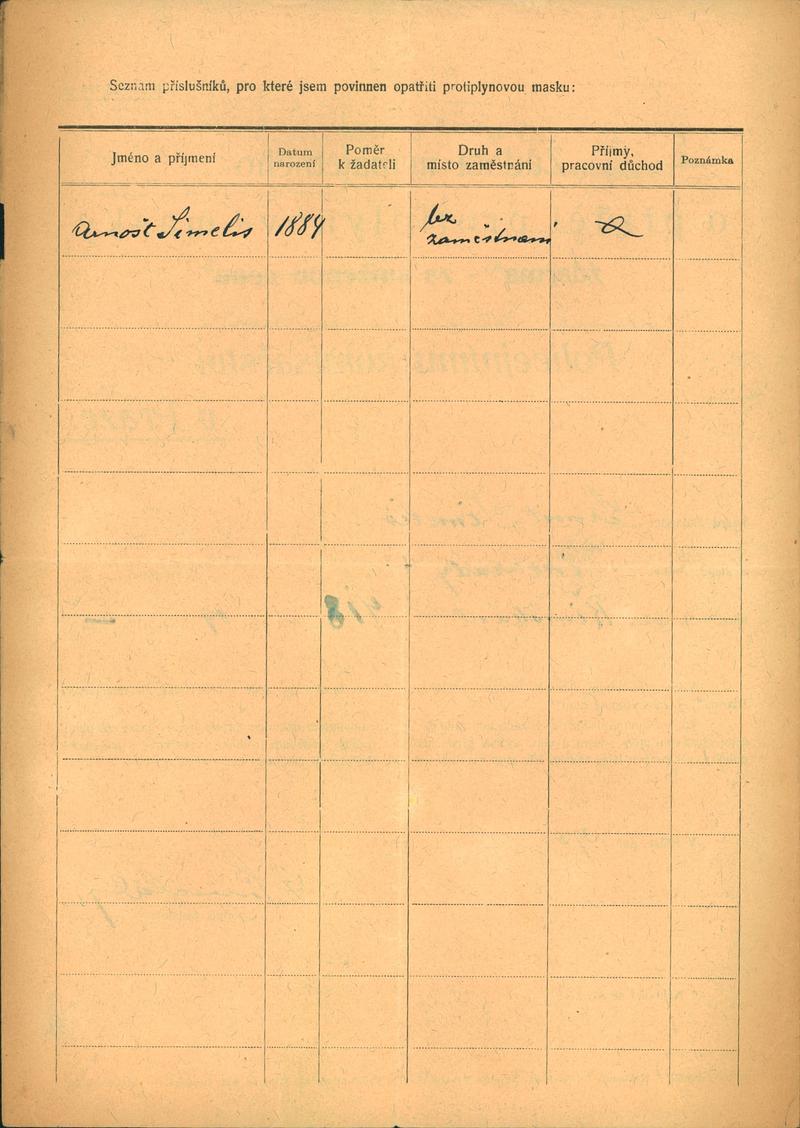 Seznam příslušníků, pro které jsem povinnen opatřiti protiplynovou masku:
Jméno a příjmení
Datum
narození
Poměr
k žadateli
Druh a
místo zaměstnání
Příjmy,
pracovní důchod
Poznámka
Arnošt Simelis
1884
bez
zaměstnání